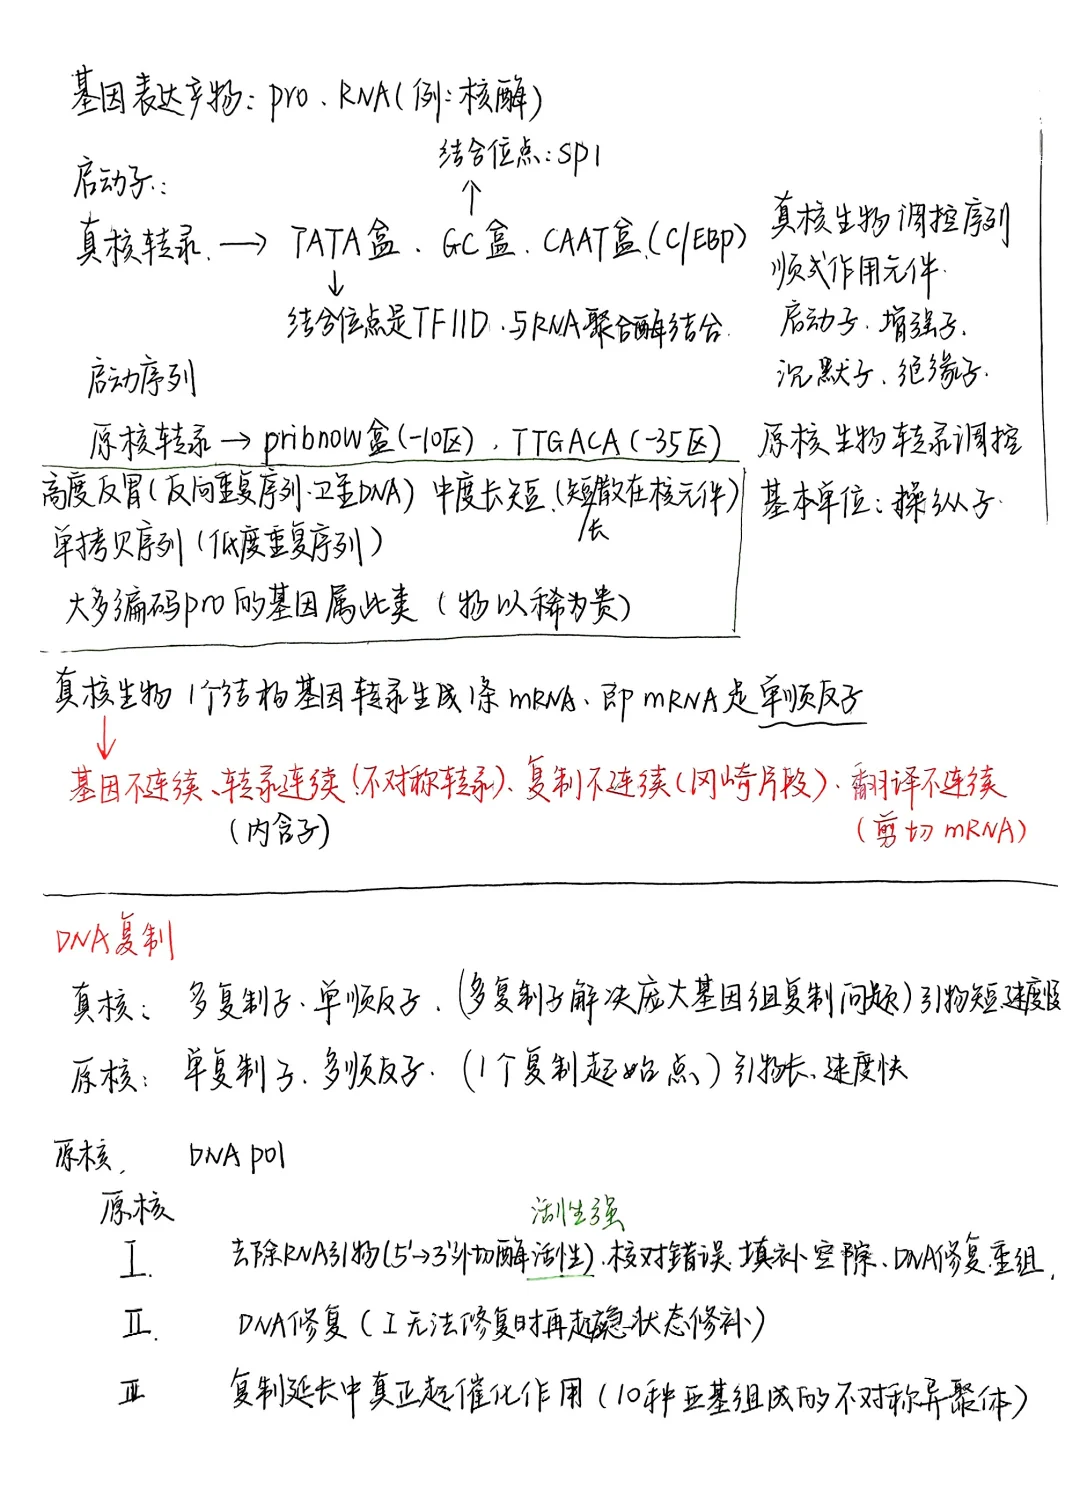 基因表达产物：pro、RNA（例：核酶）
结合位点：SP1
启动子：
真核转录 → TATA盒、GC盒、CAAT盒（C/EBP）
结合位点是TFIID、与RNA聚合酶结合
真核生物调控序列
顺式作用元件
启动子、增强子、
沉默子、绝缘子
启动序列
原核转录 → pribnow盒（-10区）、TTGACA（-35区）
原核生物转录调控
基本单位：操纵子
高度反胃（反向重复序列、卫星DNA）中度长短（短散在核元件）
长
单拷贝序列（低度重复序列）
大多编码pro的基因属此类（物以稀为贵）
真核生物1个结构基因转录生成1条mRNA、即mRNA是单顺反子
基因不连续、转录连续（不对称转录）、复制不连续（冈崎片段）、翻译不连续
（内含子）
（剪切mRNA）
DNA复制
真核：多复制子、单顺反子、（多复制子解决庞大基因组复制问题）引物短、速度慢
原核：单复制子、多顺反子、（1个复制起始点）引物长、速度快
原核、DNA pol
原核
活性强
I. 去除RNA引物（5'→3'外切酶活性）、核对错误、填补空隙、DNA修复、重组、
II. DNA修复（I无法修复时再起 状态修补）
III 复制延长中真正起催化作用（10种亚基组成的不对称异聚体）